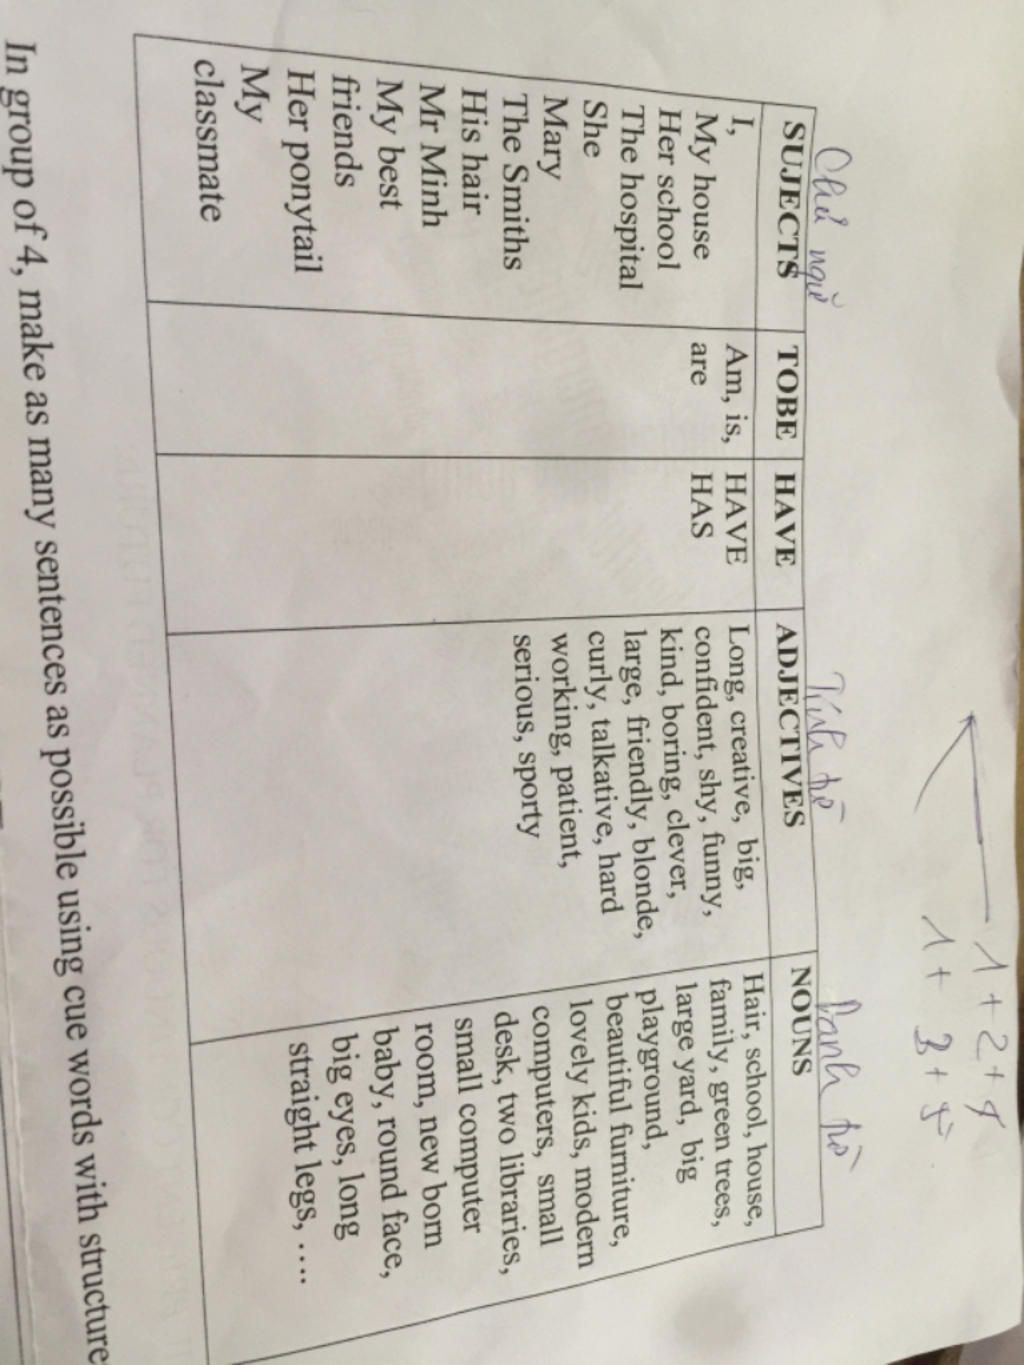 1 + 2 + 4
1 + 3 + 5
Chủ ngữ
Tính từ
Danh từ
SUJECTS
TOBE
HAVE
ADJECTIVES
NOUNS
I,
My house
Her school
The hospital
She
Mary
The Smiths
His hair
Mr Minh
My best
friends
Her ponytail
My
classmate
Am, is,
are
HAVE
HAS
Long, creative, big,
confident, shy, funny,
kind, boring, clever,
large, friendly, blonde,
curly, talkative, hard
working, patient,
serious, sporty
Hair, school, house,
family, green trees,
large yard, big
playground,
beautiful furniture,
lovely kids, modern
computers, small
desk, two libraries,
small computer
room, new born
baby, round face,
big eyes, long
straight legs, ....
In group of 4, make as many sentences as possible using cue words with structure